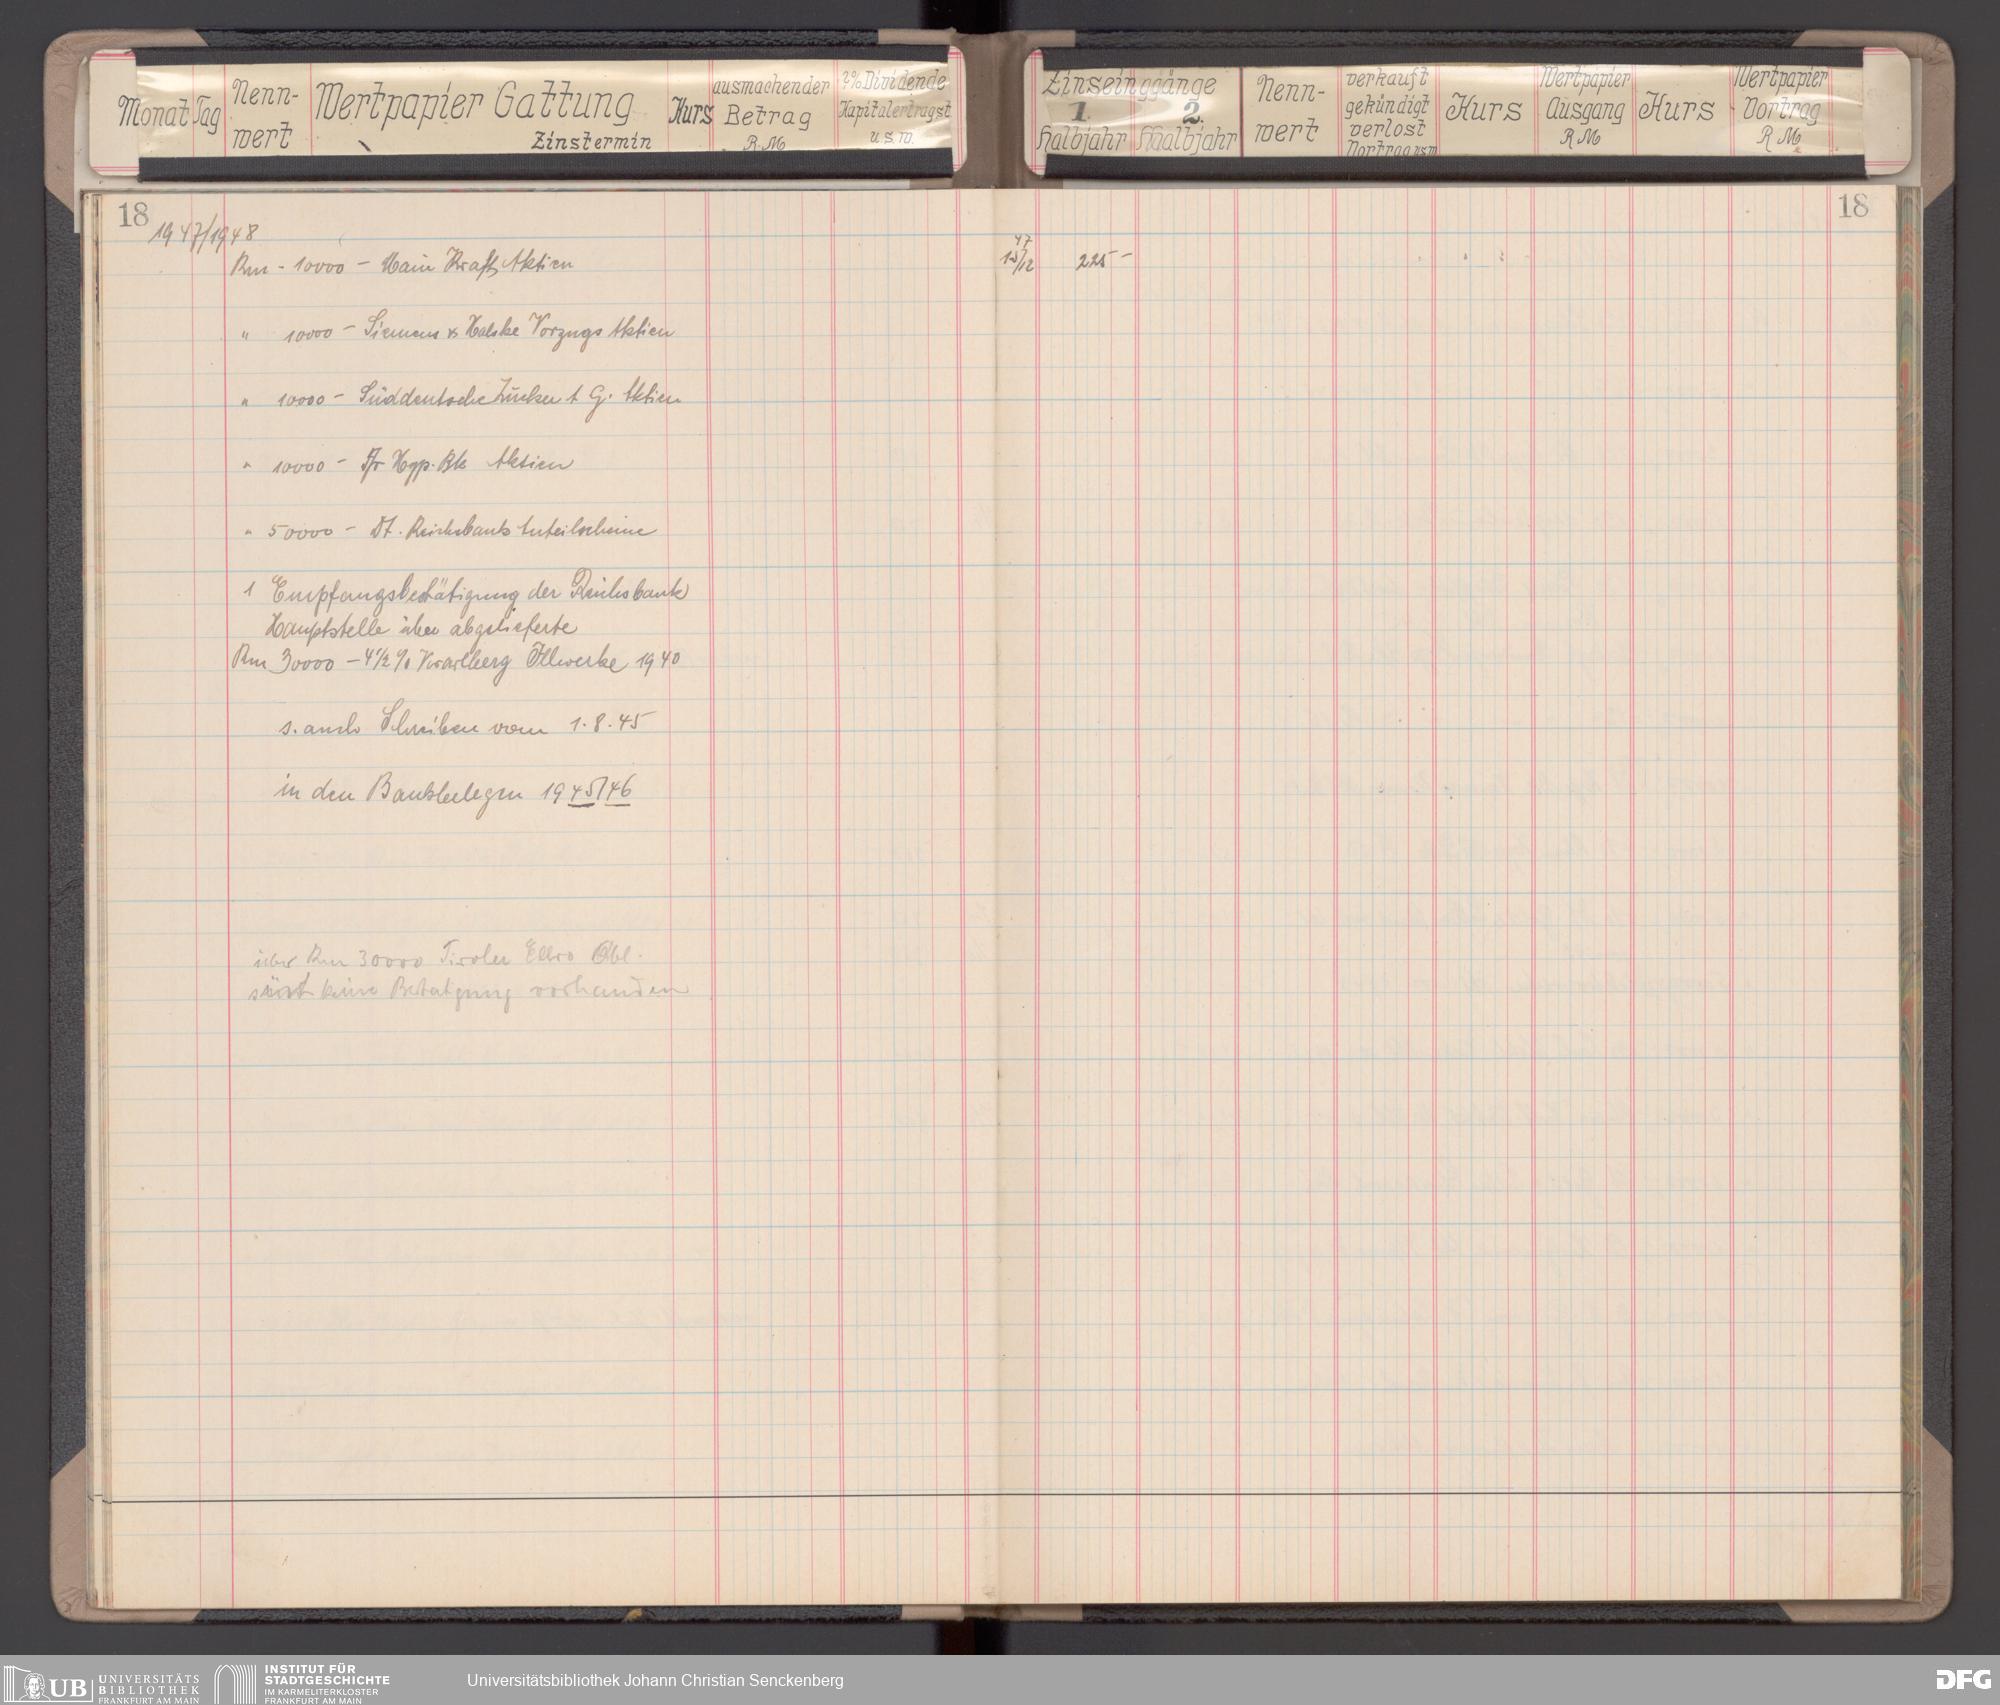 Monat Tag
Nenn-
wert
Wertpapier Gattung
Zinstermin
Kurs
ausmachender
Betrag
R.M
2% Dividende
Kapitalertragst
u.s.w.
Zinseingänge
1. Halbjahr
2. Halbjahr
Nenn-
wert
verkauft
gekündigt
verlost
Vortrag usw
Kurs
Wertpapier
Ausgang
R M
Kurs
Wertpapier
Vortrag
R M
18
18
1947/1948
Rm - 10000 - Main Kraft Aktien
47
15/12 225 -
" 10000 - Siemens & Halske Vorzugs Aktien
" 10000 - Süddeutsche Zucker A G. Aktien
" 10000 - Fr Hyp. Bk Aktien
" 50000 - Dt. Reichsbank Anteilscheine
1 Empfangsbestätigung der Reichsbank
Hauptstelle über abgelieferte
Rm 30000 - 4 1/2 % Vorarlberg Illwerke 1940
s. auch Schreiben vom 1.8.45
in den Bankbelegen 1945/46
über Rm 30000 Tiroler Obl.
keine Bestätigung vorhanden
UB UNIVERSITÄTS
BIBLIOTHEK
FRANKFURT AM MAIN
INSTITUT FÜR
STADTGESCHICHTE
IM KARMELITERKLOSTER
FRANKFURT AM MAIN
Universitätsbibliothek Johann Christian Senckenberg
DFG